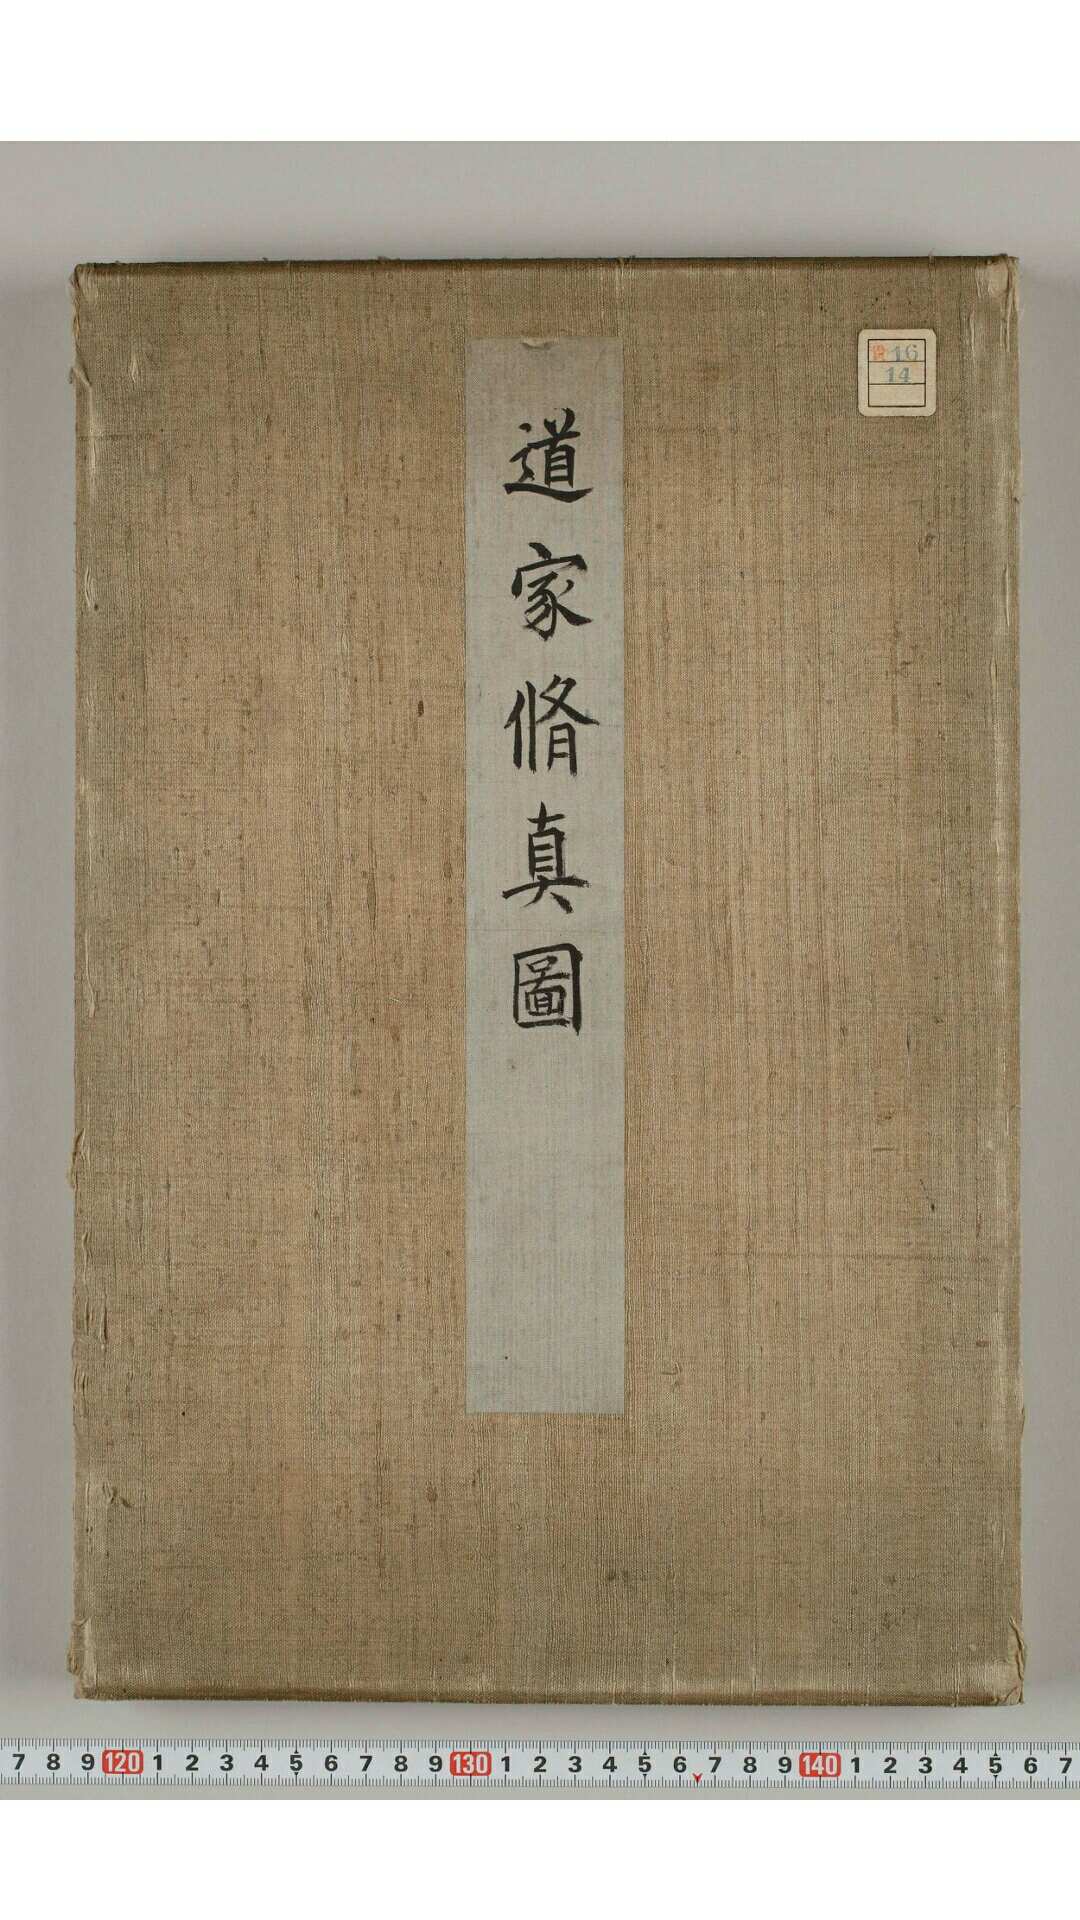 道家脩真圖
16
14
7 8 9 120 1 2 3 4 5 6 7 8 9 130 1 2 3 4 5 6 7 8 9 140 1 2 3 4 5 6 7